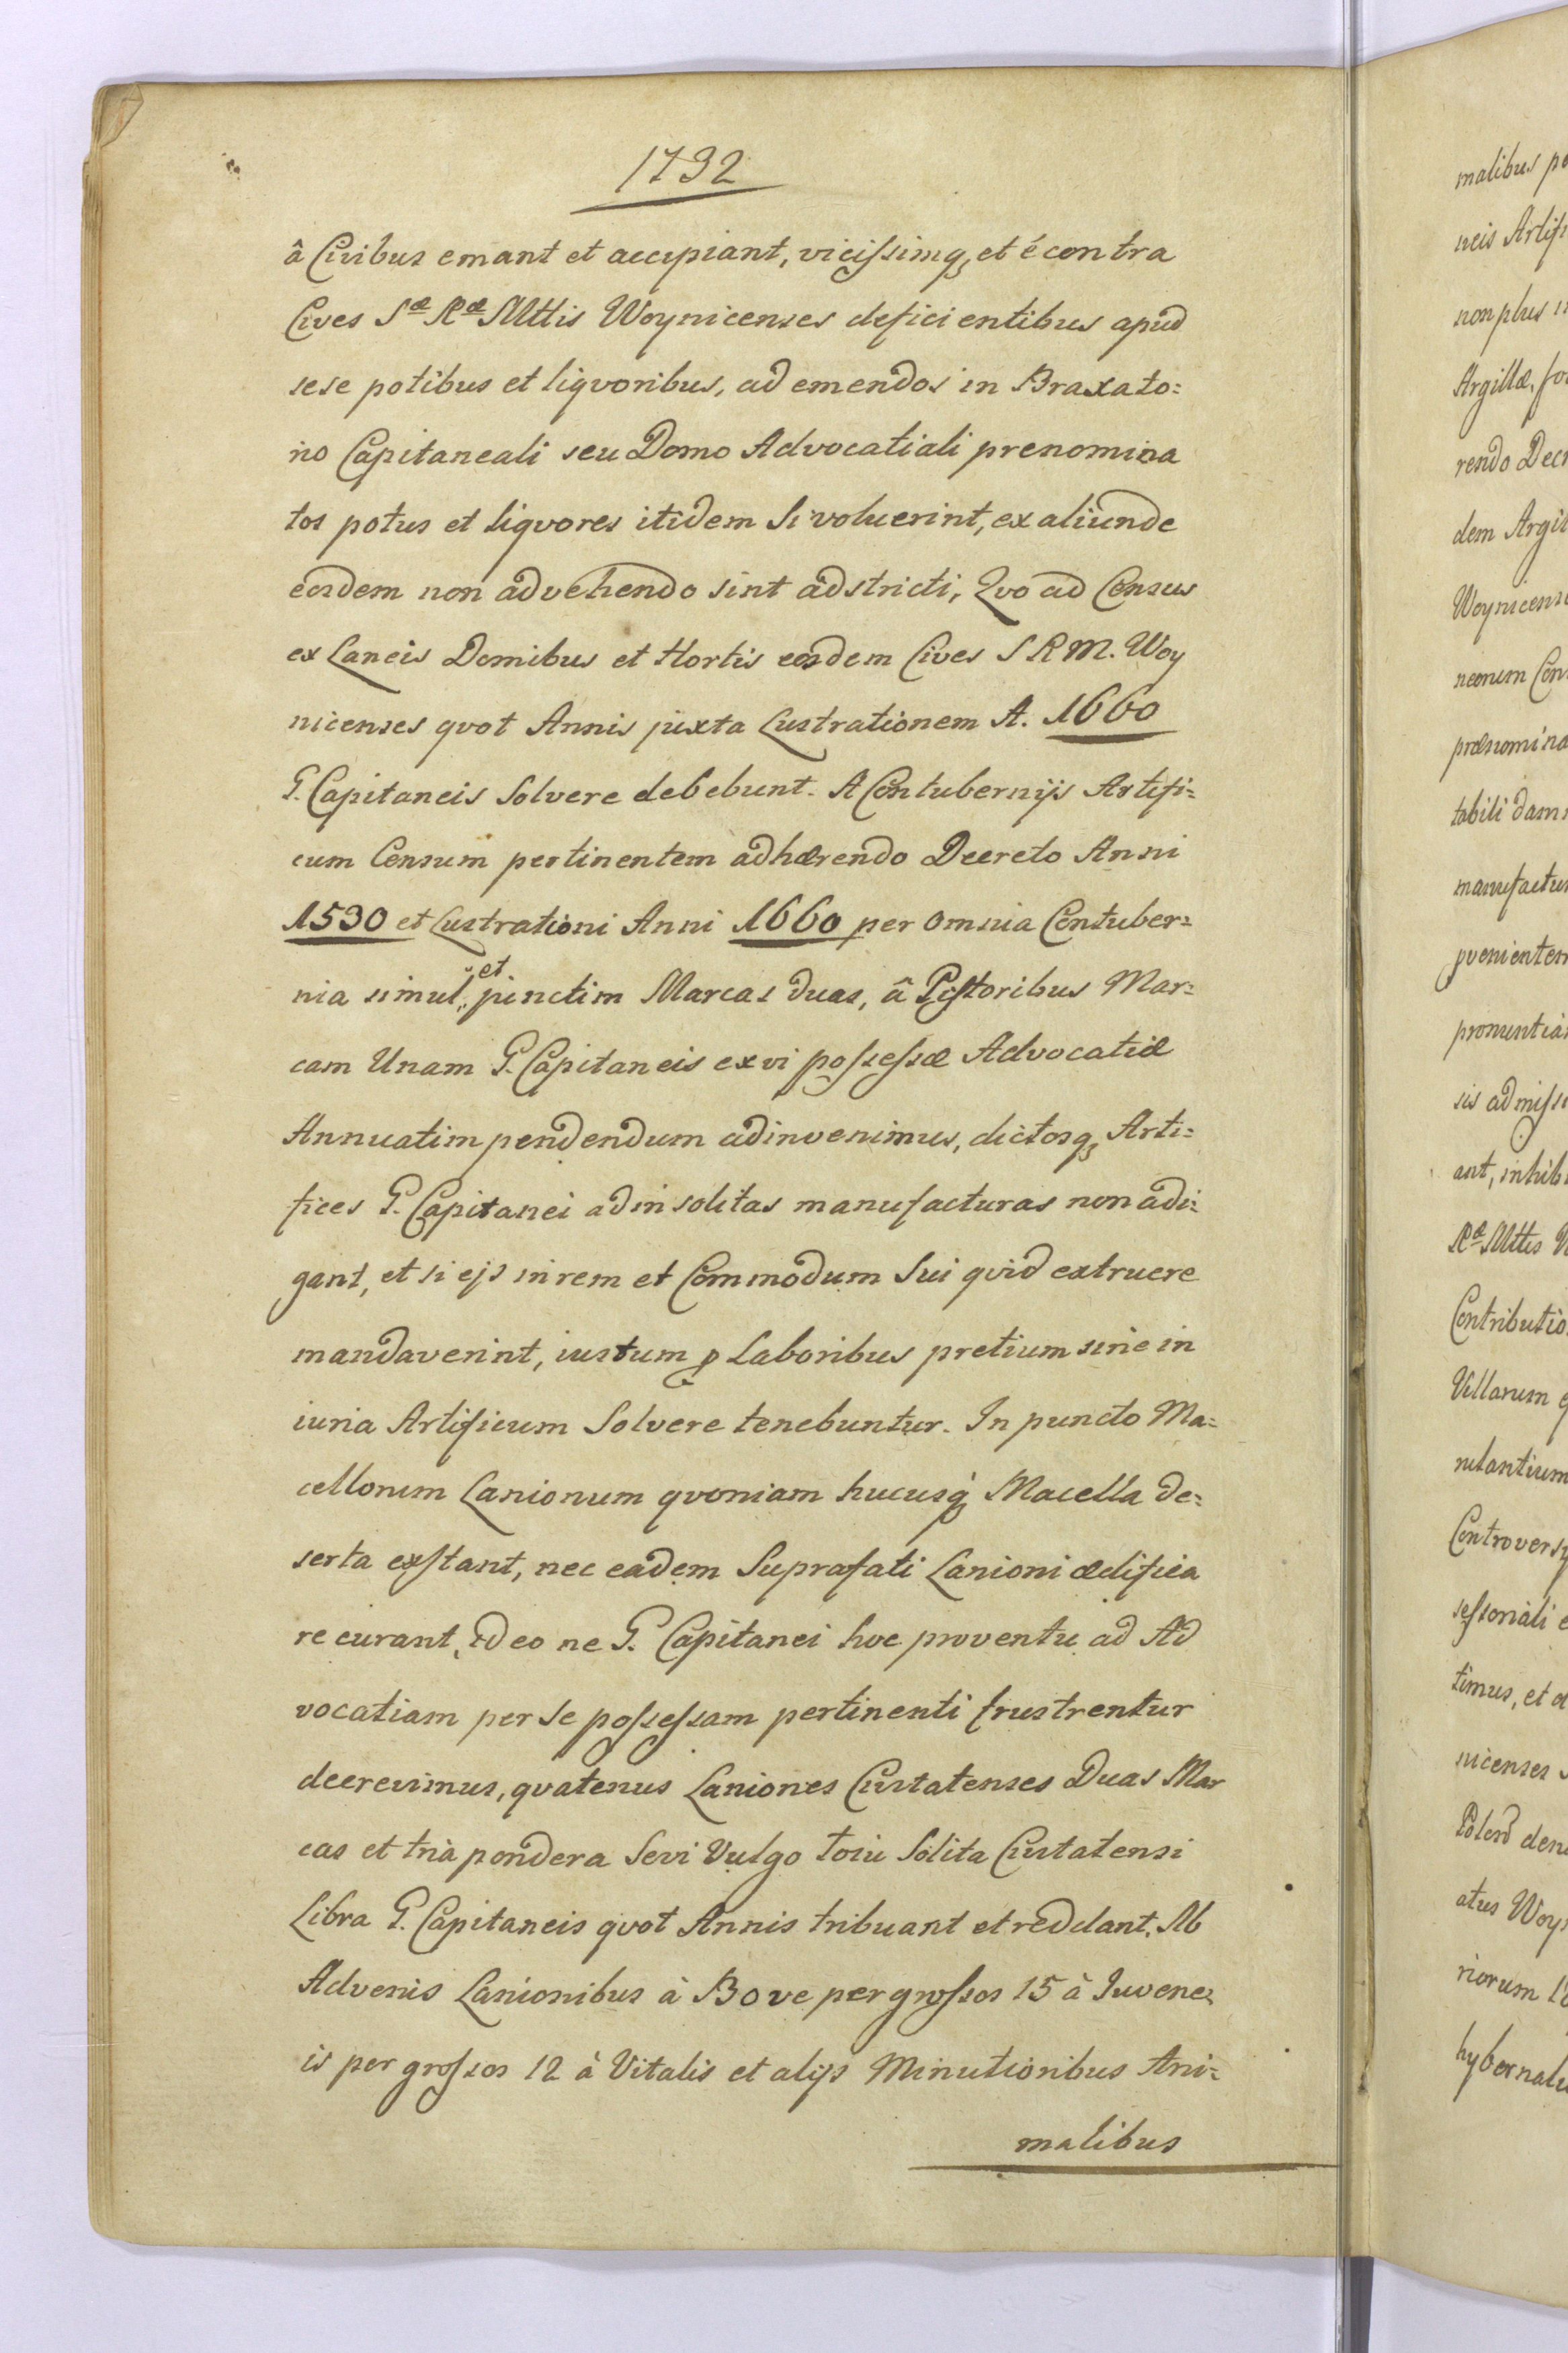 1732
â Civibus emant et accipiant, vicissimq, et é contra
Cives Sæ Ræ Mttis Woynicenses deficientibus apud
sese potibus et liqvoribus, ad emendos in Braxato=
rio Capitaneali seu Domo Advocatiali prenomina
tos potus et liqvores itidem Si voluerint, ex aliunde
eosdem non advehendo sint adstricti, Qvo ad Census
ex Laneis Domibus et Hortis eosdem Cives S R M. Woy
nicenses qvot Annis juxta Lustrationem A. 1660
G. Capitaneis Solvere debebunt. A Contubernijs Artifi=
cum Censum pertinentem adhærendo Decreto Anni
1530 et Lustrationi Anni 1660 per omnia Contuber=
nia simul, et junctim Marcas duas, â Pistoribus Mar=
cam Unam G. Capitaneis ex vi possessæ Advocatiæ
Annuatim pendendum adinvenimus, dictosq, Arti=
fices G. Capitanei ad insolitas manufacturas non adi=
gant, et si ejs in rem et Commodum Sui qvid extruere
mandaverint, iustum p Laboribus pretium sine in
iuria Artificum Solvere tenebuntur. In puncto Ma=
cellorum Lanionum qvoniam hucusq, Macella de=
serta exstant, nec eadem Suprafati Lanioni ædifica
re curant, ideo ne G. Capitanei hoc proventu ad Ad
vocatiam per se possessam pertinenti frustrentur
decrevimus, qvatenus Laniones Civitatenses Duas Mar
cas et tria pondera Sevi Vulgo Łoiu Solita Civitatensi
Libra G. Capitaneis qvot Annis tribuant et reddant. Ab
Advenis Lanionibus à Bove per grossos 15 à Iuvene
is per grossos 12 à Vitulis et alijs Minutioribus Ani=
malibus
malibus pe
neis Artifi
non plus
Argillæ,
rendo Decr
dem Argil
Woynicens
neonum Con
prænomina
tabili dam
manufactur
pvenientem
pronuntia
sis admiss
ant, inhib
Ræ Mttis W
Contributio
Villarum
rutantium
Controvers
sessoriali e
timus, et
nicenses
Polon dene
atus Woy
riorum
hybernal